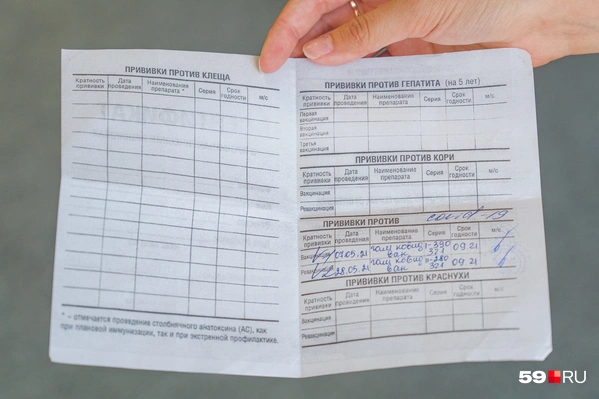 ПРИВИВКИ ПРОТИВ КЛЕЩА
Кратность прививки Дата проведения Наименование препарата * Серия Срок годности м/с
* – отмечается проведение столбнячного анатоксина (АС), как
при плановой иммунизации, так и при экстренной профилактике.
ПРИВИВКИ ПРОТИВ ГЕПАТИТА (на 5 лет)
Кратность прививки Дата проведения Наименование препарата Серия Срок годности м/с
Первая вакцинация
Вторая вакцинация
Третья вакцинация
ПРИВИВКИ ПРОТИВ КОРИ
Кратность прививки Дата проведения Наименование препарата Серия Срок годности м/с
Вакцинация
Ревакцинация
ПРИВИВКИ ПРОТИВ covid-19
Кратность прививки Дата проведения Наименование препарата Серия Срок годности м/с
Вакцинация .05.21 гам ковид вак 09 21
Ревакцинация 28.05.21 гам ковид вак 09 21
ПРИВИВКИ ПРОТИВ КРАСНУХИ
Кратность прививки Дата проведения Наименование препарата Серия Срок годности м/с
Вакцинация
Ревакцинация
59.RU